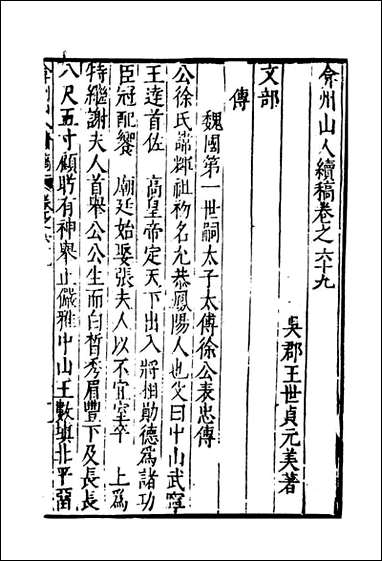 弇州山人續稿卷之六十九
吳郡王世貞元美著
文部
傳
魏國第一世嗣太子太傅徐公表忠傳
公徐氏諱輝祖初名允恭鳳陽人也父曰中山武寧
王達首佐 高皇帝定天下出入將相勛德爲諸功
臣冠配饗 廟廷始娶張夫人以不宜室卒 上爲
特繼謝夫人首舉公公生而白皙秀眉豐下及長長
八尺五寸顧聘有神舉止儼雅中山王數填北平留